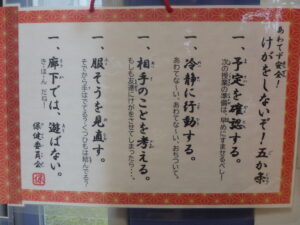 あわてず安全!
けがをしないぞ!五か条
一、予定を確認する。
次の授業の準備は、早めにすませるべし!
一、冷静に行動する。
あわてな〜い、あわてな〜い、おちついて。
一、相手のことを考える。
もしも友達にけがをさせてしまったら…。
一、服そうを見直す。
そでから手はでてる?くつひもは結んでる?
一、廊下では、遊ばない。
保健委員会